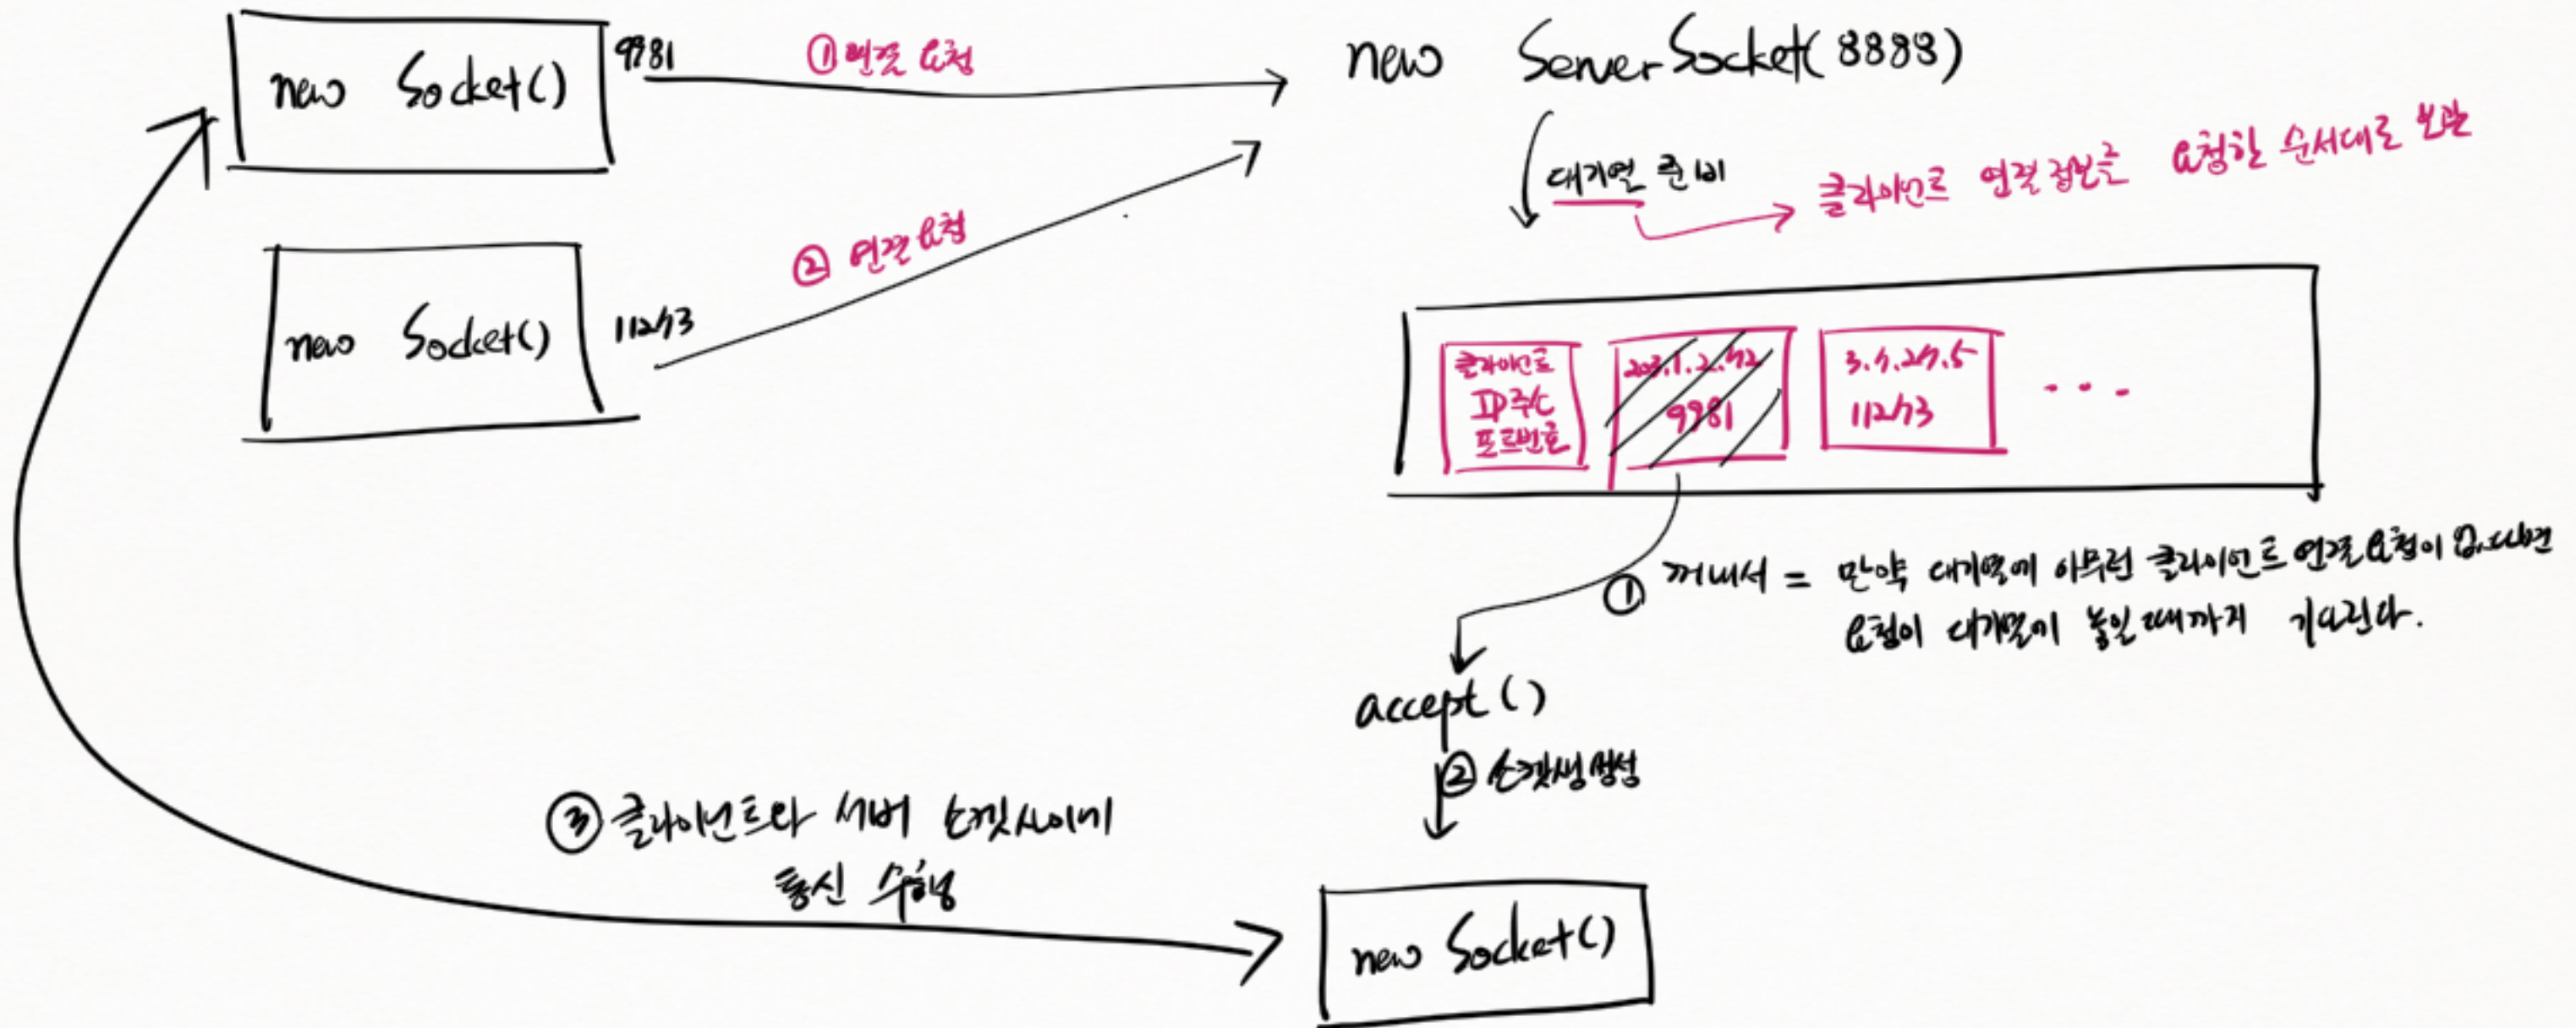 new Socket()
9981
① 연결 요청
new ServerSocket(8888)
대기열 준비
클라이언트 연결 정보를 요청한 순서대로 보관
② 연결 요청
new Socket()
클라이언트
IP주소
포트번호
203.1.2.42
9981
...
① 꺼내서 = 만약 대기열에 아무런 클라이언트 연결 요청이 없다면
요청이 대기열에 놓일 때까지 기다린다.
accept()
② 소켓생성
③ 클라이언트와 서버 소켓사이에
통신 수행
new Socket()